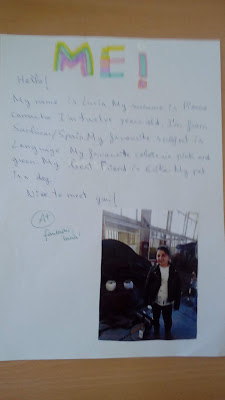 ME!
Hello!
My name is Lucía My surname is
I'm twelve years old. I'm from
Spain. My favourite subject is
Language. My favourite colours are pink and
green. My best friend is My pet
is a dog.
Nice to meet you!
A+